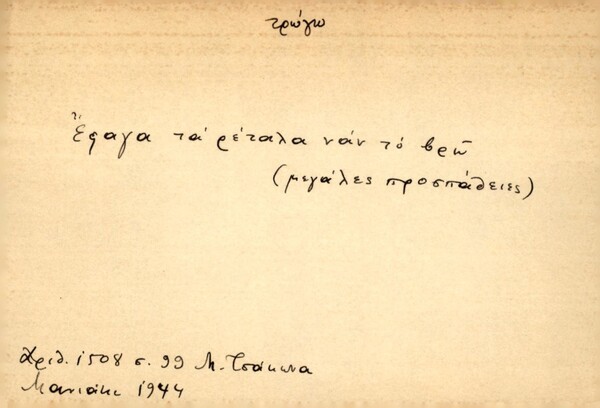 τρώγω
Ἔφαγα τά ρέταλα νάν τό βρῶ
(μεγάλες προσπάθειες)
Ἀριθ. 1508 σ. 99 Μ. Τσάκωνα
Μανιάκι 1944